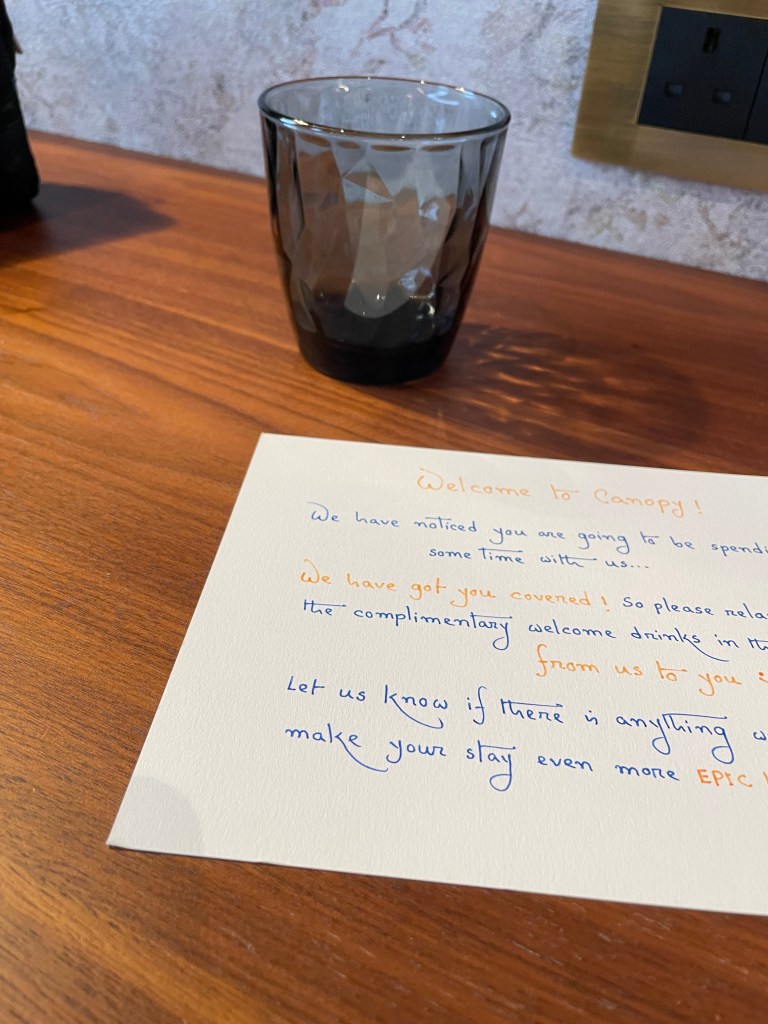 Welcome to Canopy!
We have noticed you are going to be spendi
some time with us...
We have got you covered! So please rela
the complimentary welcome drinks in th
from us to you :
Let us know if there is anything w
make your stay even more EPIC